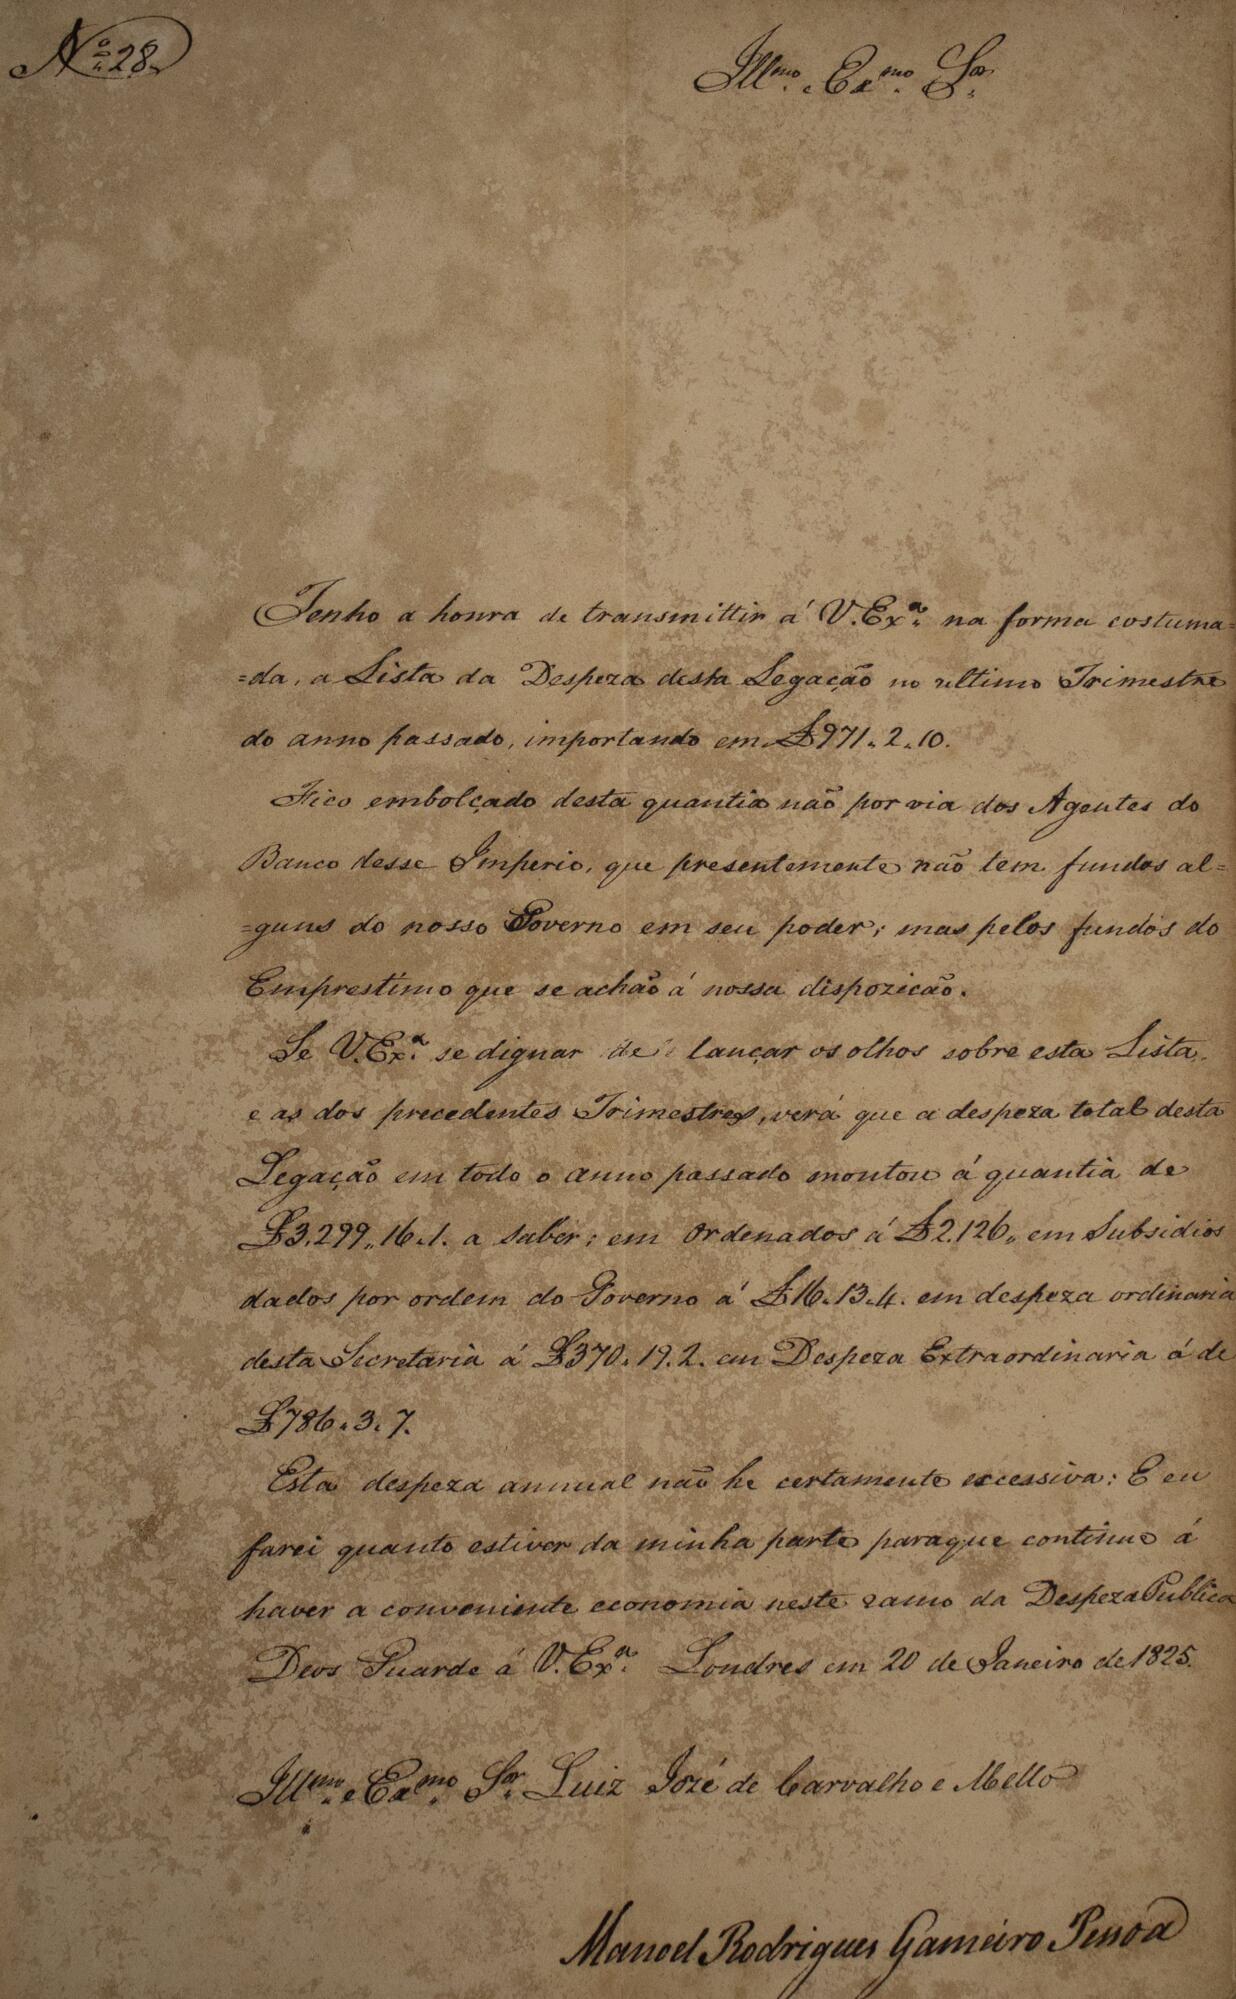 Nº 28.
Illmo. e Exmo. Sor.
Tenho a honra de transmittir á V. Exa. na forma costuma=
=da, a Lista da Despeza desta Legação no ultimo Trimestre
do anno passado, importando em £971.2.10.
Fico embolçado desta quantia não por via dos Agentes do
Banco desse Imperio, que presentemente não tem fundos al=
=guns do nosso Governo em seu poder; mas pelos fundos do
Emprestimo que se achão á nossa dispozicão.
Se V. Exa. se dignar de lançar os olhos sobre esta Lista,
e as dos precedentes Trimestres, verá que a despeza total desta
Legação em todo o anno passado montou á quantia de
£3.299,,16.1. a saber; em Ordenados á £2.126,, em Subsidios
dados por ordem do Governo á £16.13.4. em despeza ordinaria
desta Secretaria á £370.19.2. em Despeza Extraordinaria á de
£786.3.7.
Esta despeza annual não he certamente excessiva: E eu
farei quanto estiver da minha parte paraque continue á
haver a conveniente economia neste ramo da Despeza Publica
Deos Guarde á V. Exa. Londres em 20 de Janeiro de 1825.
Illmo. e Exmo. Sor. Luiz Jozé de Carvalho e Mello
Manoel Rodrigues Gameiro Pessoa